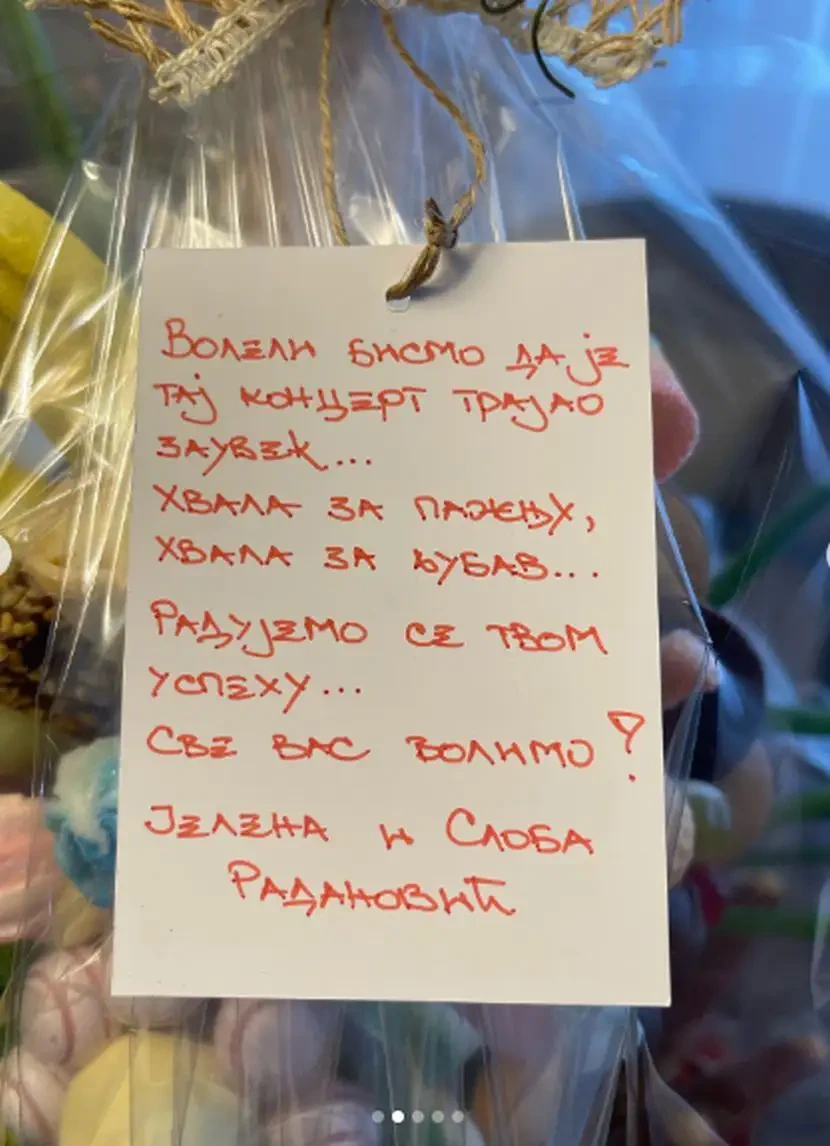 Волели бисмо да је
тај концерт трајао
заувек...
Хвала за пажњу,
хвала за љубав...
Радујемо се твом
успеху...
Све вас волимо!
Јелена и Слоба
Радановић